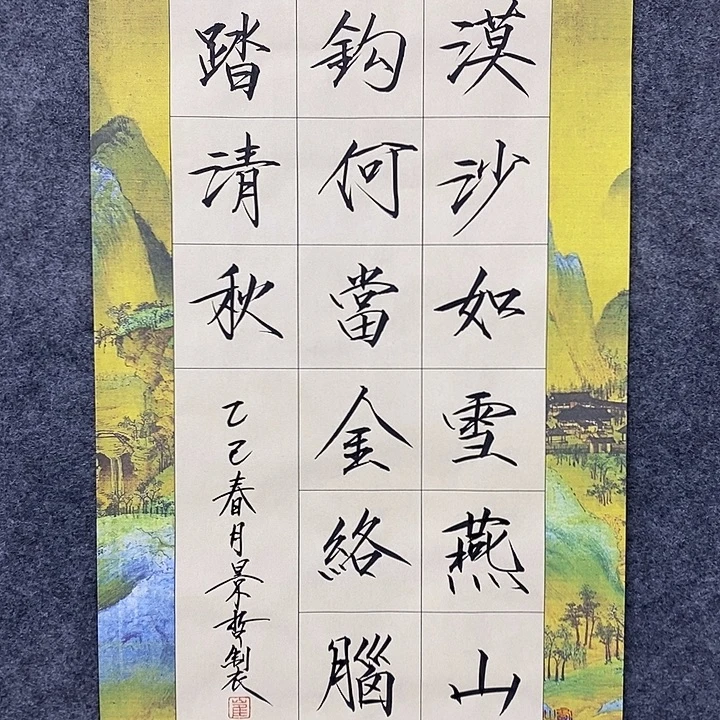 漠沙如雪燕山
鈎何當金絡腦
踏清秋
乙巳春月景哲製